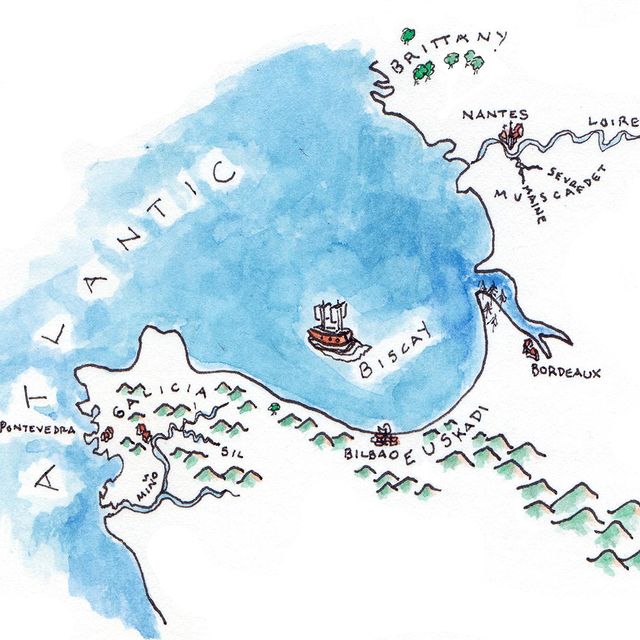 BRITTANY
NANTES
LOIRE
SEVRE
MAINE
MUSCARDET
ATLANTIC
BISCAY
BORDEAUX
GALICIA
PONTEVEDRA
SIL
MINO
BILBAO
EUSKADI